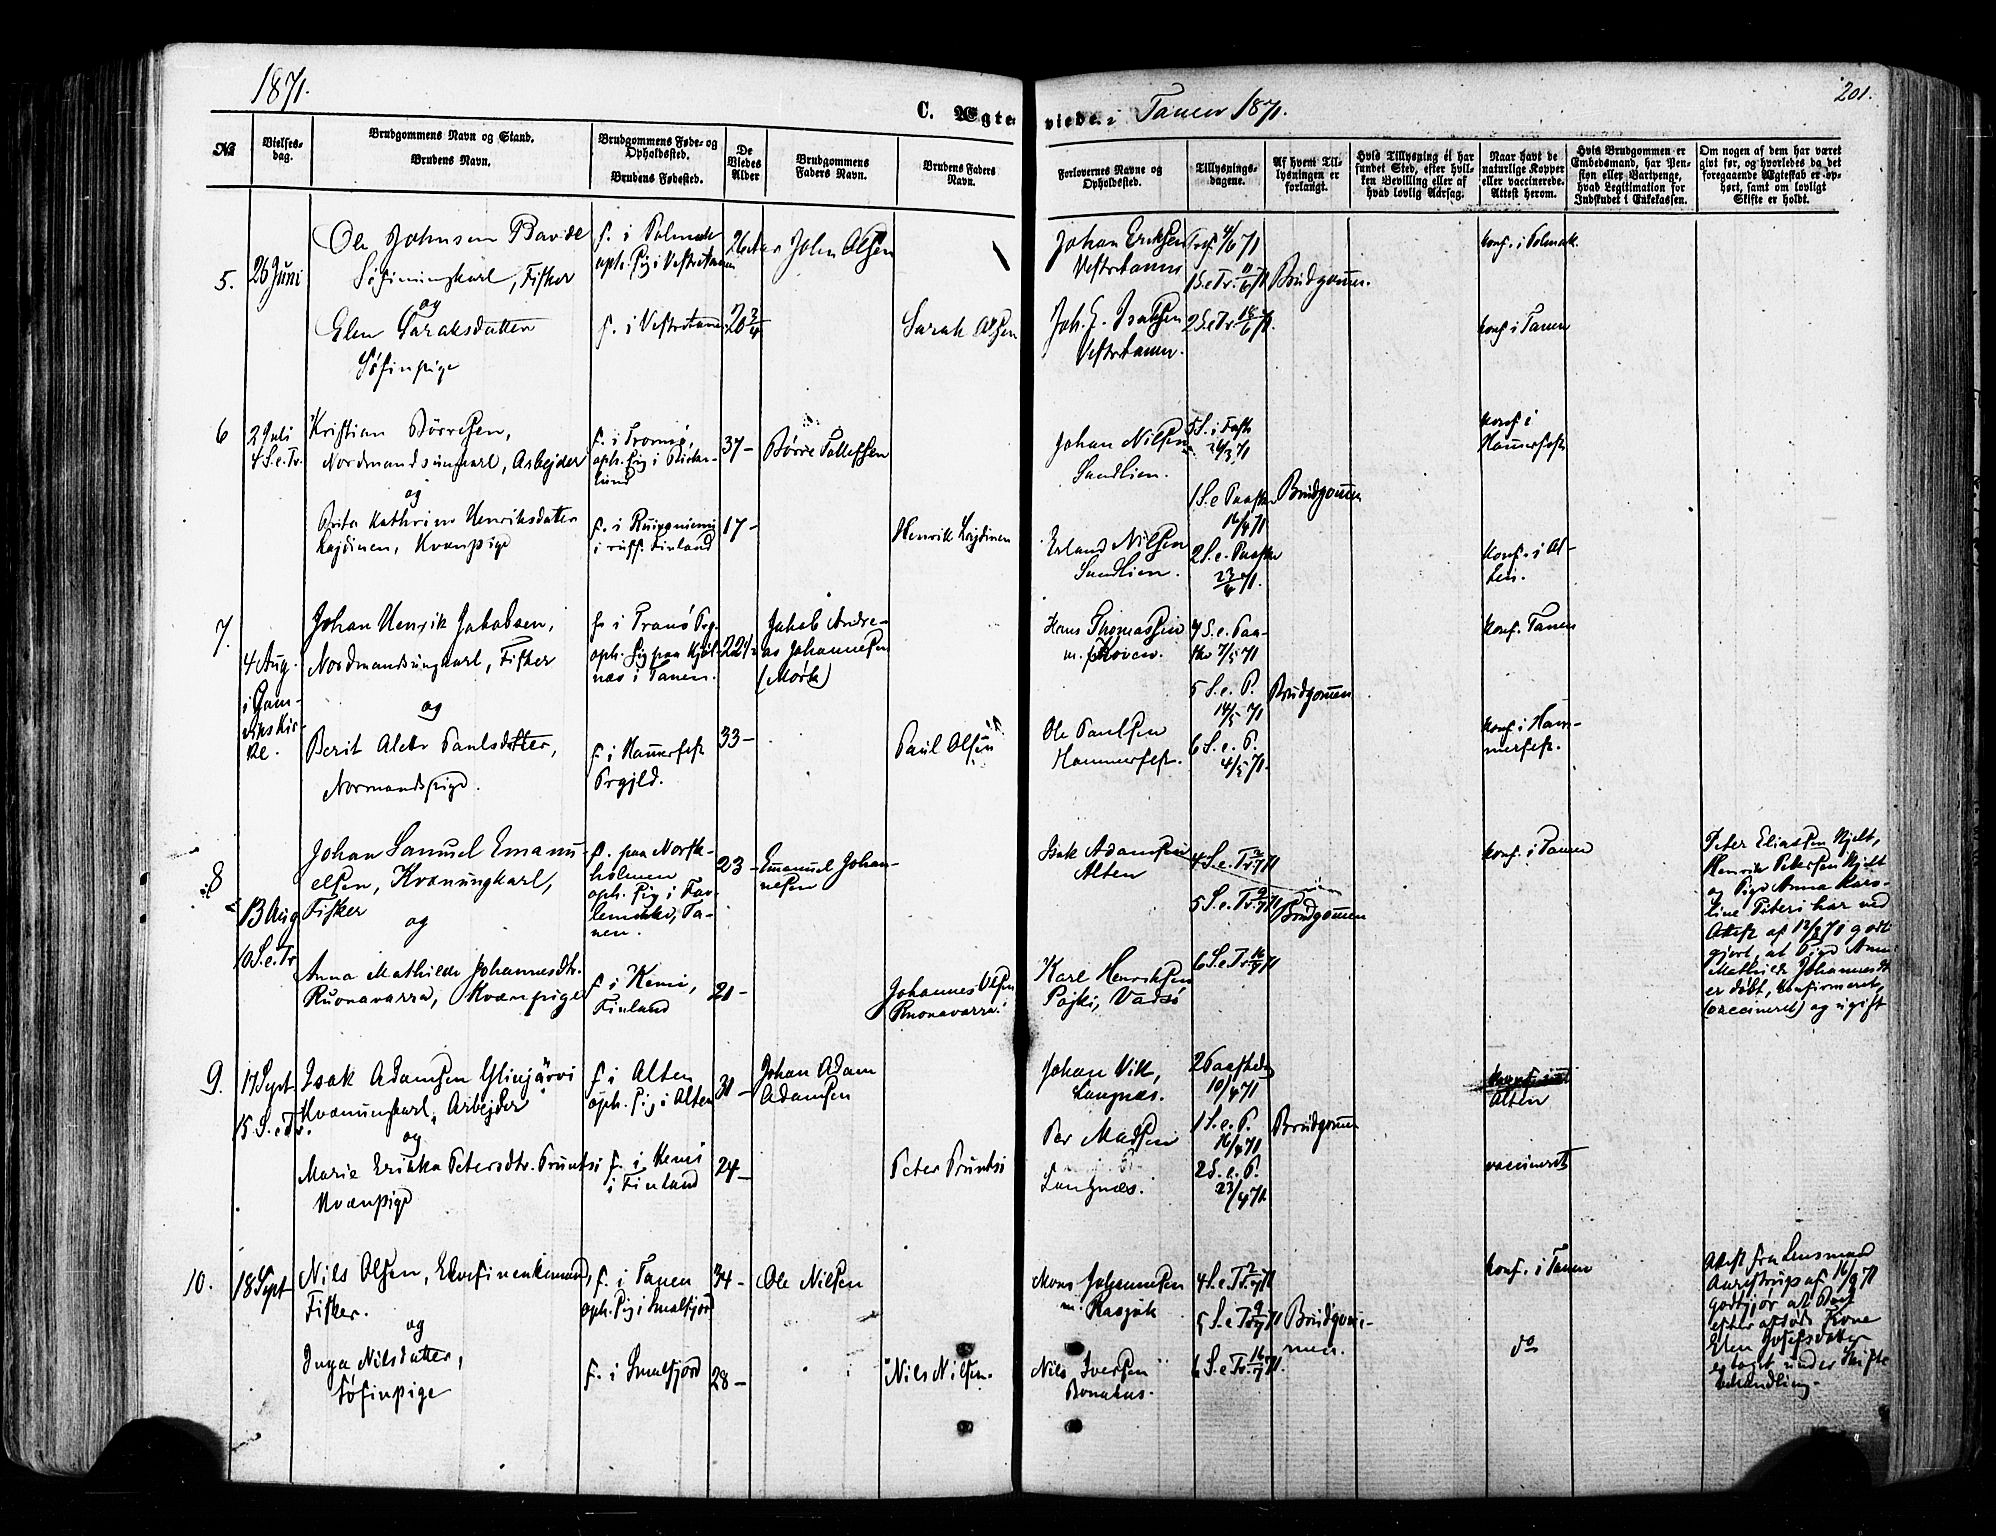 1871.
C. Ægteviede i Tanen 1871.
201.
No
Vielsesdag.
Brudgommens Navn og Stand.
Brudens Navn.
Brudgommens Føde- og Opholdssted.
Brudens Fødested.
De Viedes Alder
Brudgommens Faders Navn.
Brudens Faders Navn.
Forlovernes Navne og Opholdssted.
Tillysningsdagene.
Af hvem Tillysningen er forlangt.
Hvis Tillysning ei har fundet Sted, efter hvilken Bevilling eller af hvad lovlig Aarsag.
Naar havt de naturlige Kopper eller vaccinerede. Attest herom.
Hvis Brudgommen er Embedsmand, har Pension eller Vartpenge, hvad Legitimation for Indskudet i Enkekassen.
Om nogen af dem har været givt før, og hvorledes da det foregaaende Ægteskab er ophørt, samt om lovligt Skifte er holdt.
5.
26 Juni
Ole Johnsen
Søfinungkarl, Fisker
og
Elen Saraksdatter
Søfinpige
f. i Polmak
oph. sig i Vestertanen
f. i Vestertanen
26
20 3/4
John Olsen
Sarak Olsen
Johan Eriksen
Vestertanen
Joh. E. Isaksen
Vestertanen.
Trf. 4/6 71
1 S.e.Tr. 11/6 71
2 S.e.Tr. 18/6 71.
Brudgommen.
konf. i Polmak
konf. i Tanen
6
2 Juli
4 S.e.Tr.
Kristian Børresen,
Nordmandsungkarl, Arbejder
og
Brita Kathrine Henriksdatter
Lajdinen, Kvænpige
f. i Tromsø,
oph. sig i
f. i
i russ. Finland
37 –
17 –
Børre Tollefsen
Henrik Lajdinen
Johan Nilsen
Sandlien.
Erland Nilsen
Sandlien.
5 S. i Faste
26/3 71
1 S.e. Paaske
16/4 71
2 S.e. Paaske
23/4 71.
Brudgommen
konf. i
Hammerfest
konf. i Alten.
7.
4 Aug.
i Gamvikskirke.
Johan Henrik Jakobsen,
Nordmandsungkarl, Fisker
og
Berit Alette Paulsdatter,
Normandspige.
f. i Tranø Prg.
oph. sig paa Kjølnæs i Tanen.
f. i Hammerfest
Prgjld.
22 1/2
33 –
Jakob Andreas Johannesen
(Mørk)
Paul Olsen
Hans Thomassen
Ole Paulsen
Hammerfest.
4 S.e. Paaske 7/5 71
5 S.e. P.
14/5 71
6 S.e. P.
Brudgommen
konf. Tanen
konf. i Hammerfest.
8
13 Aug
10 S.e.Tr
Johan Samuel Emanuelsen, Kvænungkarl,
Fisker
og
Anna Mathilde Johannesdtr.
Ruonavarra, Kvænpige
f. paa Norskholmen
oph. sig i
Tanen.
f. i Kemi,
Finland
23 –
21 –
Emanuel Johannesen
Johannes Olsen
Ruonavarra.
Isak Adamsen
Alten
Karl Henriksen
Pojki, Vadsø
4 S.e.Tr. 2/7 71
5 S.e.Tr. 9/7 71
6 S.e.Tr. 16/7 71
Brudgommen
konf. i Tanen
Peter Eliassen Hjelt,
Henrik Petersen Hjelt
og Pige Anna Karoline Piteri har ved
Attest af 12/8 71 godtgjort, at Pige Anna
Mathilde Johannesdtr
er døbt, konfirmeret,
(vaccineret) og ugift
9.
17 Sept
15 S.e.Tr.
Isak Adamsen Ylinjärvi
Kvænungkarl, Arbejder
og
Marie Erikka Petersdtr. Pruntsi
Kvænpige
f. i Alten
oph. sig i Alten
f. i Kemi
i Finland
31 –
24 –
Johan Adam
Adamsen
Peter Pruntsi
Johan Vik,
Langnæs.
Per Madsen
Langnæs.
2 Paaskedag
10/4 71
1 S.e. P.
16/4 71
2 S.e. P.
23/4 71.
Brudgommen
Alten
vaccineret
10.
18 Sept
Nils Olsen, Elvefinenkemand,
Fisker.
og
Inga Nilsdatter,
Søfinpige
f. i Tanen
oph. sig i Smalfjord
f. i Smalfjord
34 –
28 –
Ole Nilsen
Nils Nilsen.
Mons Johannesen
Nils Iversen
Bonakas.
4 S.e.Tr. 2/7 71
5 S.e.Tr. 9/7 71
6 S.e.Tr. 16/7 71.
Brudgommen.
konf. i Tanen
do
Attest fra Lensmand
af 16/9 71
godtgjør at Boet
efter afdøde Kone
Elen Josefsdatter
er taget under Skiftebehandling.